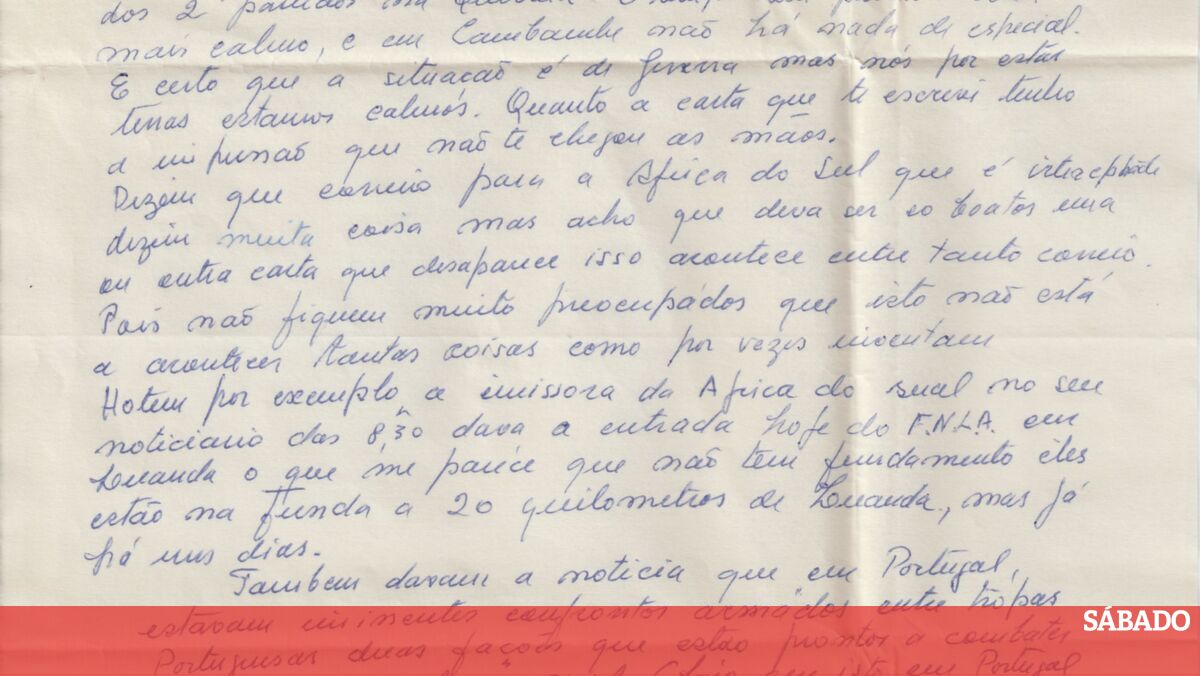 dos 2 partidos
mais calmo, e em Cambambe não há nada de especial.
E certo que a situação é de Guerra mas nós por estas
terras estamos calmos. Quanto a carta que te escrevi tenho
a impressão que não te chegou as mãos.
Dizem que correio para a Africa do Sul que é
dizem muita coisa mas acho que deva ser so boatos uma
ou outra carta que desaparece isso acontece entre tanto correio.
Pais não fiquem muito preocupádos que isto não está
a acontecer tantas coisas como por vezes inventam
Hotem por exemplo a emissora da Africa do sual no seu
noticiario das 8,30 dava a entrada hoje do F.N.L.A. em
Luanda o que me parece que não tem fundamento eles
estão na Funda a 20 quilometros de Luanda, mas já
há uns dias.
Tambem davam a noticia que em Portugal,
estavam iminentes confrontos armádos entre tropas
SÁBADO
Portuguesas duas fações que estão prontos a combater
isto em Portugal